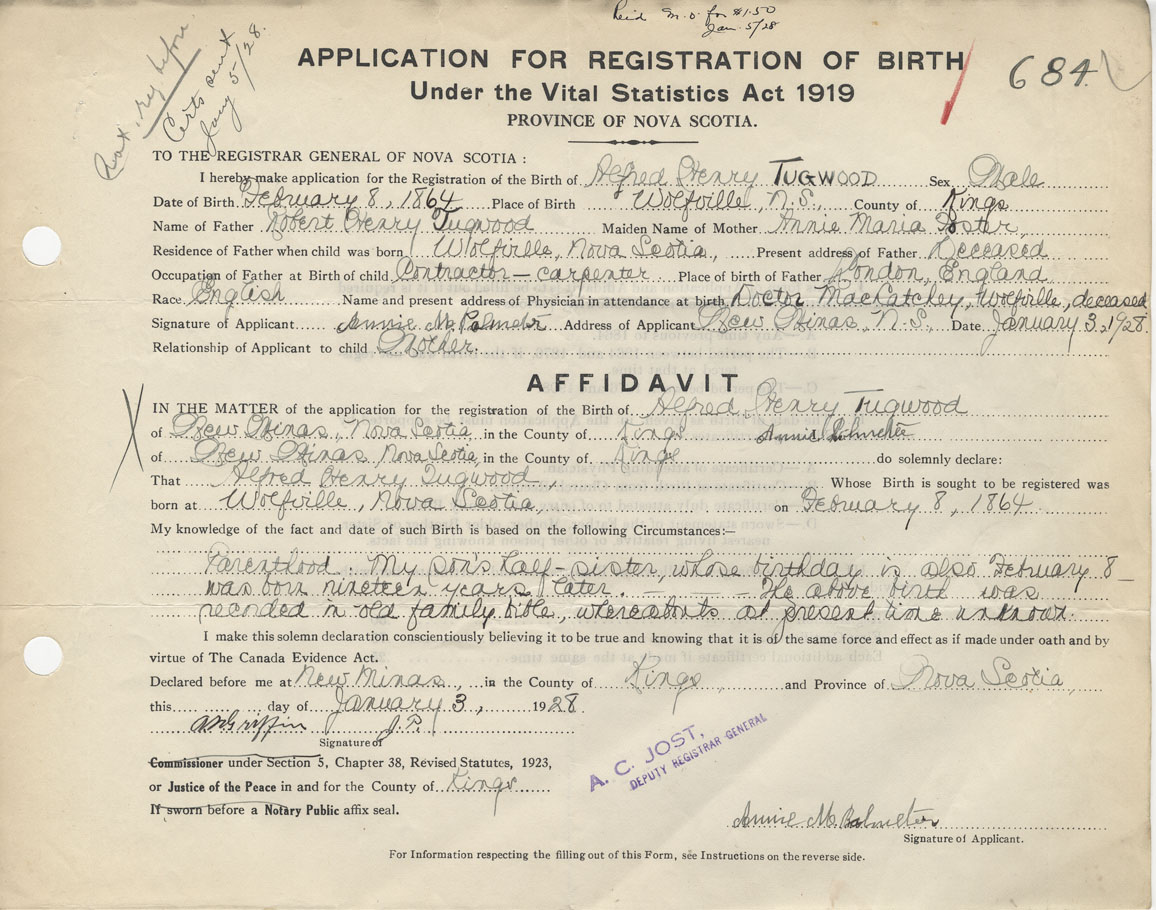 Reid M.O. for $1.50
Jan. 5/28
Not. reg before
Certs sent
Jany 5/28.
APPLICATION FOR REGISTRATION OF BIRTH
684
Under the Vital Statistics Act 1919
PROVINCE OF NOVA SCOTIA.
TO THE REGISTRAR GENERAL OF NOVA SCOTIA :
I hereby make application for the Registration of the Birth of Alfred Henry TUGWOOD Sex Male
Date of Birth February 8, 1864 Place of Birth Wolfville, N.S., County of Kings
Name of Father Robert Henry Tugwood Maiden Name of Mother Annie Maria Foster
Residence of Father when child was born Wolfville, Nova Scotia, Present address of Father Deceased
Occupation of Father at Birth of child Contractor – carpenter Place of birth of Father London, England
Race English Name and present address of Physician in attendance at birth Doctor MacLatchey, Wolfville, deceased
Signature of Applicant Annie M. Palmeter Address of Applicant New Minas, N.S., Date January 3, 1928.
Relationship of Applicant to child Mother.
AFFIDAVIT
IN THE MATTER of the application for the registration of the Birth of Alfred Henry Tugwood
of New Minas, Nova Scotia in the County of Kings Annie Palmeter
of New Minas, Nova Scotia, in the County of Kings do solemnly declare:
That Alfred Henry Tugwood, Whose Birth is sought to be registered was
born at Wolfville, Nova Scotia, on February 8, 1864
My knowledge of the fact and date of such Birth is based on the following Circumstances:—
Parenthood. My son's half-sister, whose birthday is also February 8 –
was born nineteen years later. – – – The above birth was
recorded in old family bible, whereabouts at present time unknown.
I make this solemn declaration conscientiously believing it to be true and knowing that it is of the same force and effect as if made under oath and by
virtue of The Canada Evidence Act.
Declared before me at New Minas, in the County of Kings and Province of Nova Scotia,
this day of January 3, 1928.
Griffin J.P.
Signature of
Commissioner under Section 5, Chapter 38, Revised Statutes, 1923,
or Justice of the Peace in and for the County of Kings
If sworn before a Notary Public affix seal.
A. C. JOST,
DEPUTY REGISTRAR GENERAL
Annie M. Palmeter
Signature of Applicant.
For Information respecting the filling out of this Form, see Instructions on the reverse side.